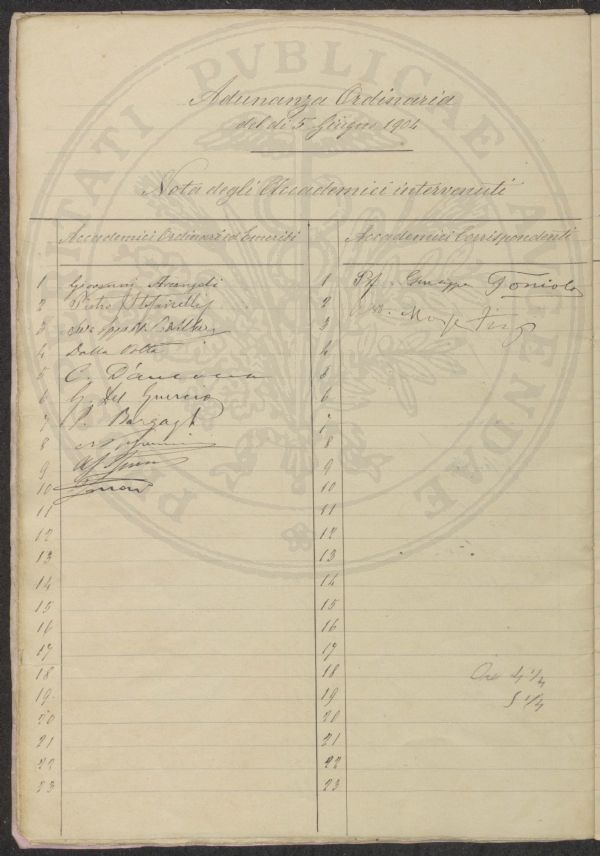 PROSPERITATI PVBLICAE AVGENDAE
Adunanza Ordinaria
del dì 5 Giugno 1904
Nota degli Accademici intervenuti
Accademici Ordinari ed Emeriti
Accademici Corrispondenti
1 Giovanni Arcangeli
2 Pietro Stefanelli
3
4 Dalla Volta
5 C. D'Ancona
6 G. Del Guercio
7 P. Bargagli
8
9
10
11
12
13
14
15
16
17
18
19
20
21
22
23
1 Prof. Giuseppe Toniolo
2
3
4
5
6
7
8
9
10
11
12
13
14
15
16
17
18
19
20
21
22
23
Ore 4 1/4
5 1/4